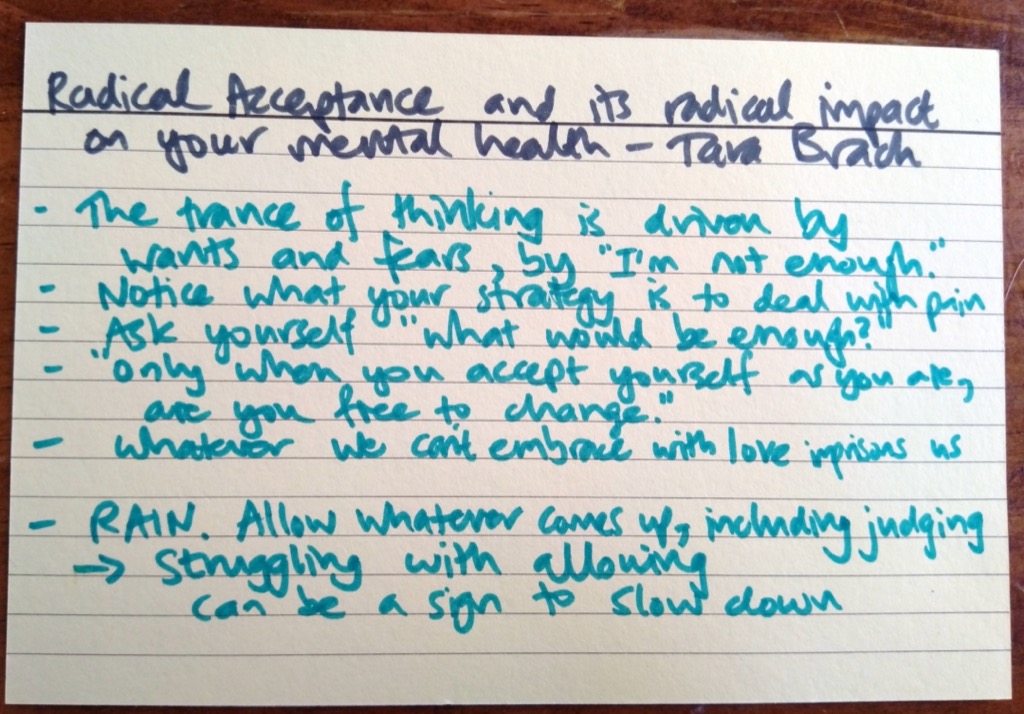 Radical Acceptance and its radical impact
on your mental health - Tara Brach
- The trance of thinking is driven by
wants and fears, by "I'm not enough."
- Notice what your strategy is to deal with pain
- Ask yourself "what would be enough?"
- "Only when you accept yourself as you are,
are you free to change."
- Whatever we can't embrace with love imprisons us
- RAIN. Allow whatever comes up, including judging
→ Struggling with allowing
can be a sign to slow down